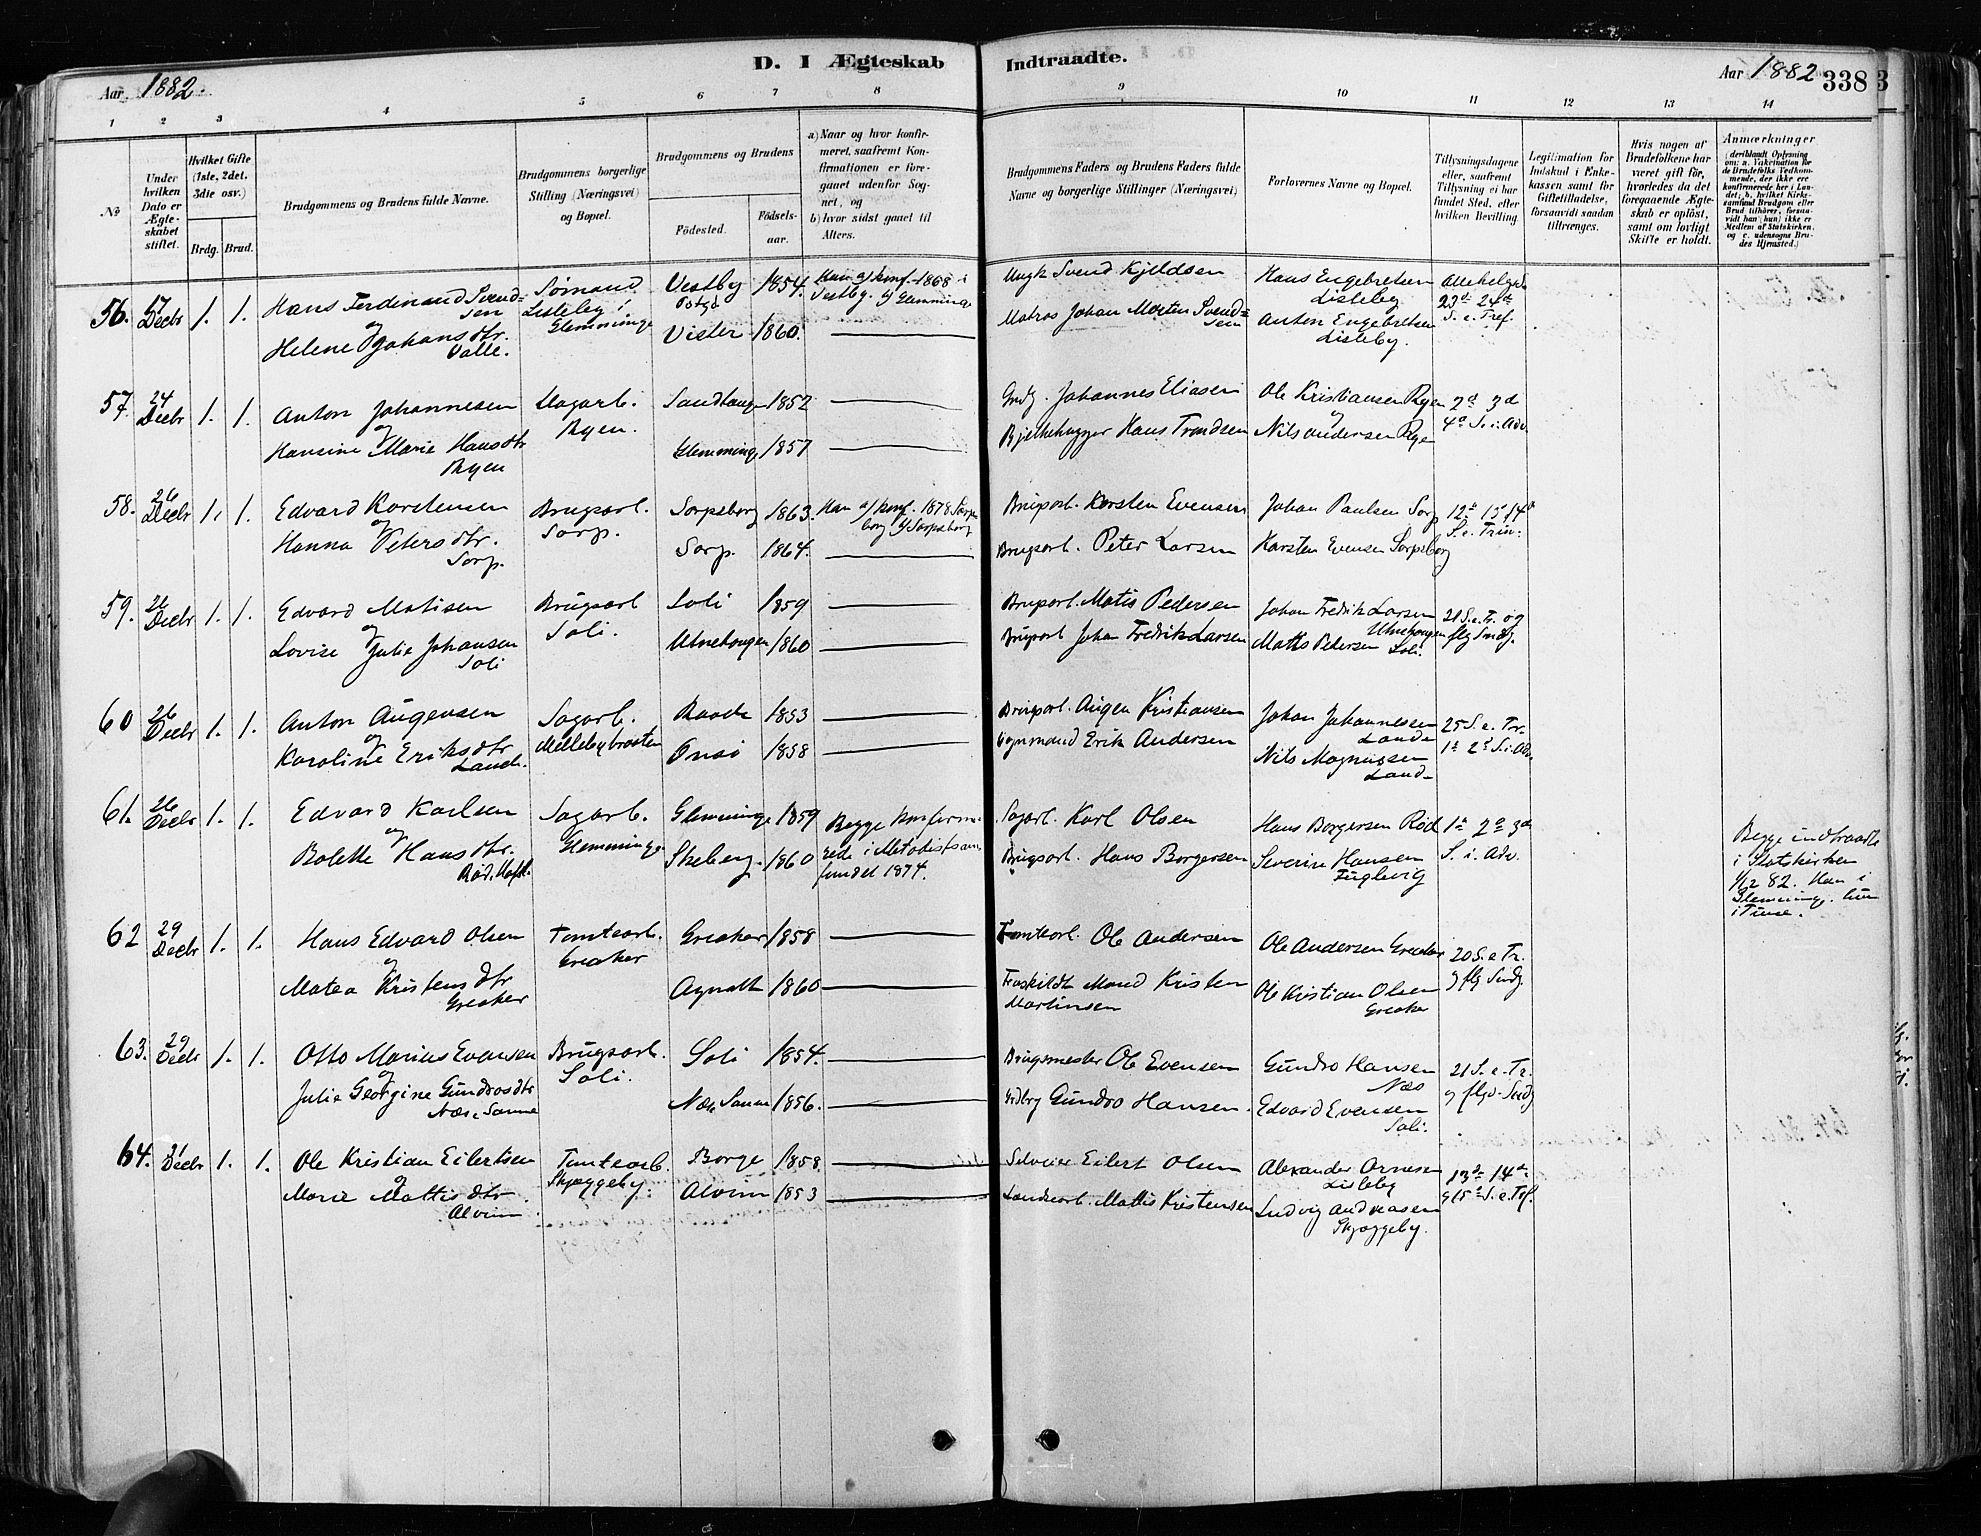 D. I Ægteskab Indtraadte.
Aar 1882.
Aar 1882 338
1 2 3 4 5 6 7 8 9 10 11 12 13 14
No
Under hvilken Dato er Ægteskabet stiftet.
Hvilket Gifte (1ste, 2det. 3die osv.)
Brdg. Brud.
Brudgommens og Brudens fulde Navne.
Brudgommens borgerlige Stilling (Næringsvei) og Bopæl.
Brudgommens og Brudens
Fødested.
Fødselsaar.
a) Naar og hvor konfirmeret, saafremt Konfirmationen er foregaaet udenfor Sognet, og
b) hvor sidst gaaet til Alters.
Brudgommens Faders og Brudens Faders fulde Navne og borgerlige Stillinger (Næringsvei)
Forlovernes Navne og Bopæl.
Tillysningsdagene eller, saafremt Tillysning ei har fundet Sted, efter hvilken Bevilling.
Legitimation for Indskud i Enkekassen samt for Giftetilladelse, forsaavidt saadan tiltrænges.
Hvis nogen af Brudefolkene har været gift før, hvorledes da det foregaaende Ægteskab er opløst, samt om lovligt Skifte er holdt.
Anmærkninger
56. Decbr 1. 1. Hans Ferdinand Svendsen Sømand Vestby 1854. Han a) konf. 1868 i Vestby. b) Glemminge
Lisleby, Glemminge
og Helene Johansdtr. Valle. Vister 1860.
Svend Kjeldsen Hans Engebretsen Lisleby
Matros Johan Morten Svendsen Anton Engebretsen Lisleby.
23de 24de S. e. Tref.
57. 24 Decbr 1. 1. Anton Johannesen Ryen. 1852
og Hansine Marie Hansdtr Ryen Glemminge 1857
Johannes Eliasen Ole Kristiansen Ryen 2d 3d
Hans Trondsen og Nils Andersen 4d S. i. Adv.
58. 26 Decbr 1. 1. Edvard Karstensen Brugsarb. Sarpsborg 1863. Han a) konf. 1878 Sarpsborg b) Sarpsborg
Sorp.
og Hanna Petersdtr. Sorp. Sorp. 1864.
Brugsarb. Karsten Evensen Johan Paulsen Sorp 12te 13 14de
Brugsarb. Peter Larsen Karsten Evensen Sarpsborg S. e. Trin.
59. 26 Decbr 1. 1. Edvard Matisen Brugsarb Soli 1859
Soli.
og Lovise Julie Johansen Soli Utnehougen 1860
Brugsarb. Matis Pedersen Johan Fredrik Larsen Utnehougen 21 S. e. Tr. og
Brugsarb Johan Fredrik Larsen Mattis Pedersen Soli. flg Sndg.
60 26 Decbr 1. 1. Anton Augensen Sagarb. Raade 1853
og Karoline Eriksdtr Lande. Onsø 1858
Brugsarb. Augen Kristiansen Johan Johannessen Lande 25 S. e. Tr.
Erik Andersen Nils Magnussen Lande 1ste 2d S. i. Adv.
61. 26 Decbr 1. 1. Edvard Karlsen Sagarb. Glemminge 1859 Begge konfirmerede i Metodistsamfundet 1874.
Glemminge
og Bolette Hansdtr. Skeberg. 1860
Sagarb. Karl Olsen Hans Borgersen Rød 1ste 2d 3die
Brugsarb. Hans Borgersen Severin Hansen Fuglevig S. i. Adv.
Begge indtraadte i Statskirken 1/12 82. Han i Glemming. hun i Tune.
62 29 Decbr 1. 1. Hans Edvard Olsen Tomtearb. Greaker 1858
Greaker
og Matea Kristensdtr Greaker Agnalt 1860
Tomtearb. Ole Andersen Ole Andersen Greaker 20 S. e Tr.
Fraskildt Mand Kristen Martinsen Ole Kristian Olsen Greaker og flg Sndg.
63. 29 Decbr 1. 1. Otto Marius Evensen Brugsarb. Soli 1854.
Soli.
og Julie Georgine Gundrosdtr Næs Sanne Næs Sanne 1856.
Brugsmester Ole Evensen Gundro Hansen Næs 21 S. e. Tr.
Gundro Hansen. Edvard Evensen Soli. og flgd. Sndg
64. 31 Decbr 1. 1. Ole Kristian Eilertsen Tomtearb. Borge 1858.
Skjæggeby.
og Marie Mattisdtr. Alvim Alvim 1853
Selveier Eilert Olsen Alexander Arnesen Lisleby 13de 14de
Mattis Kristensen Ludvig Andreasen Skjæggeby. og 15de S. e. Tref.